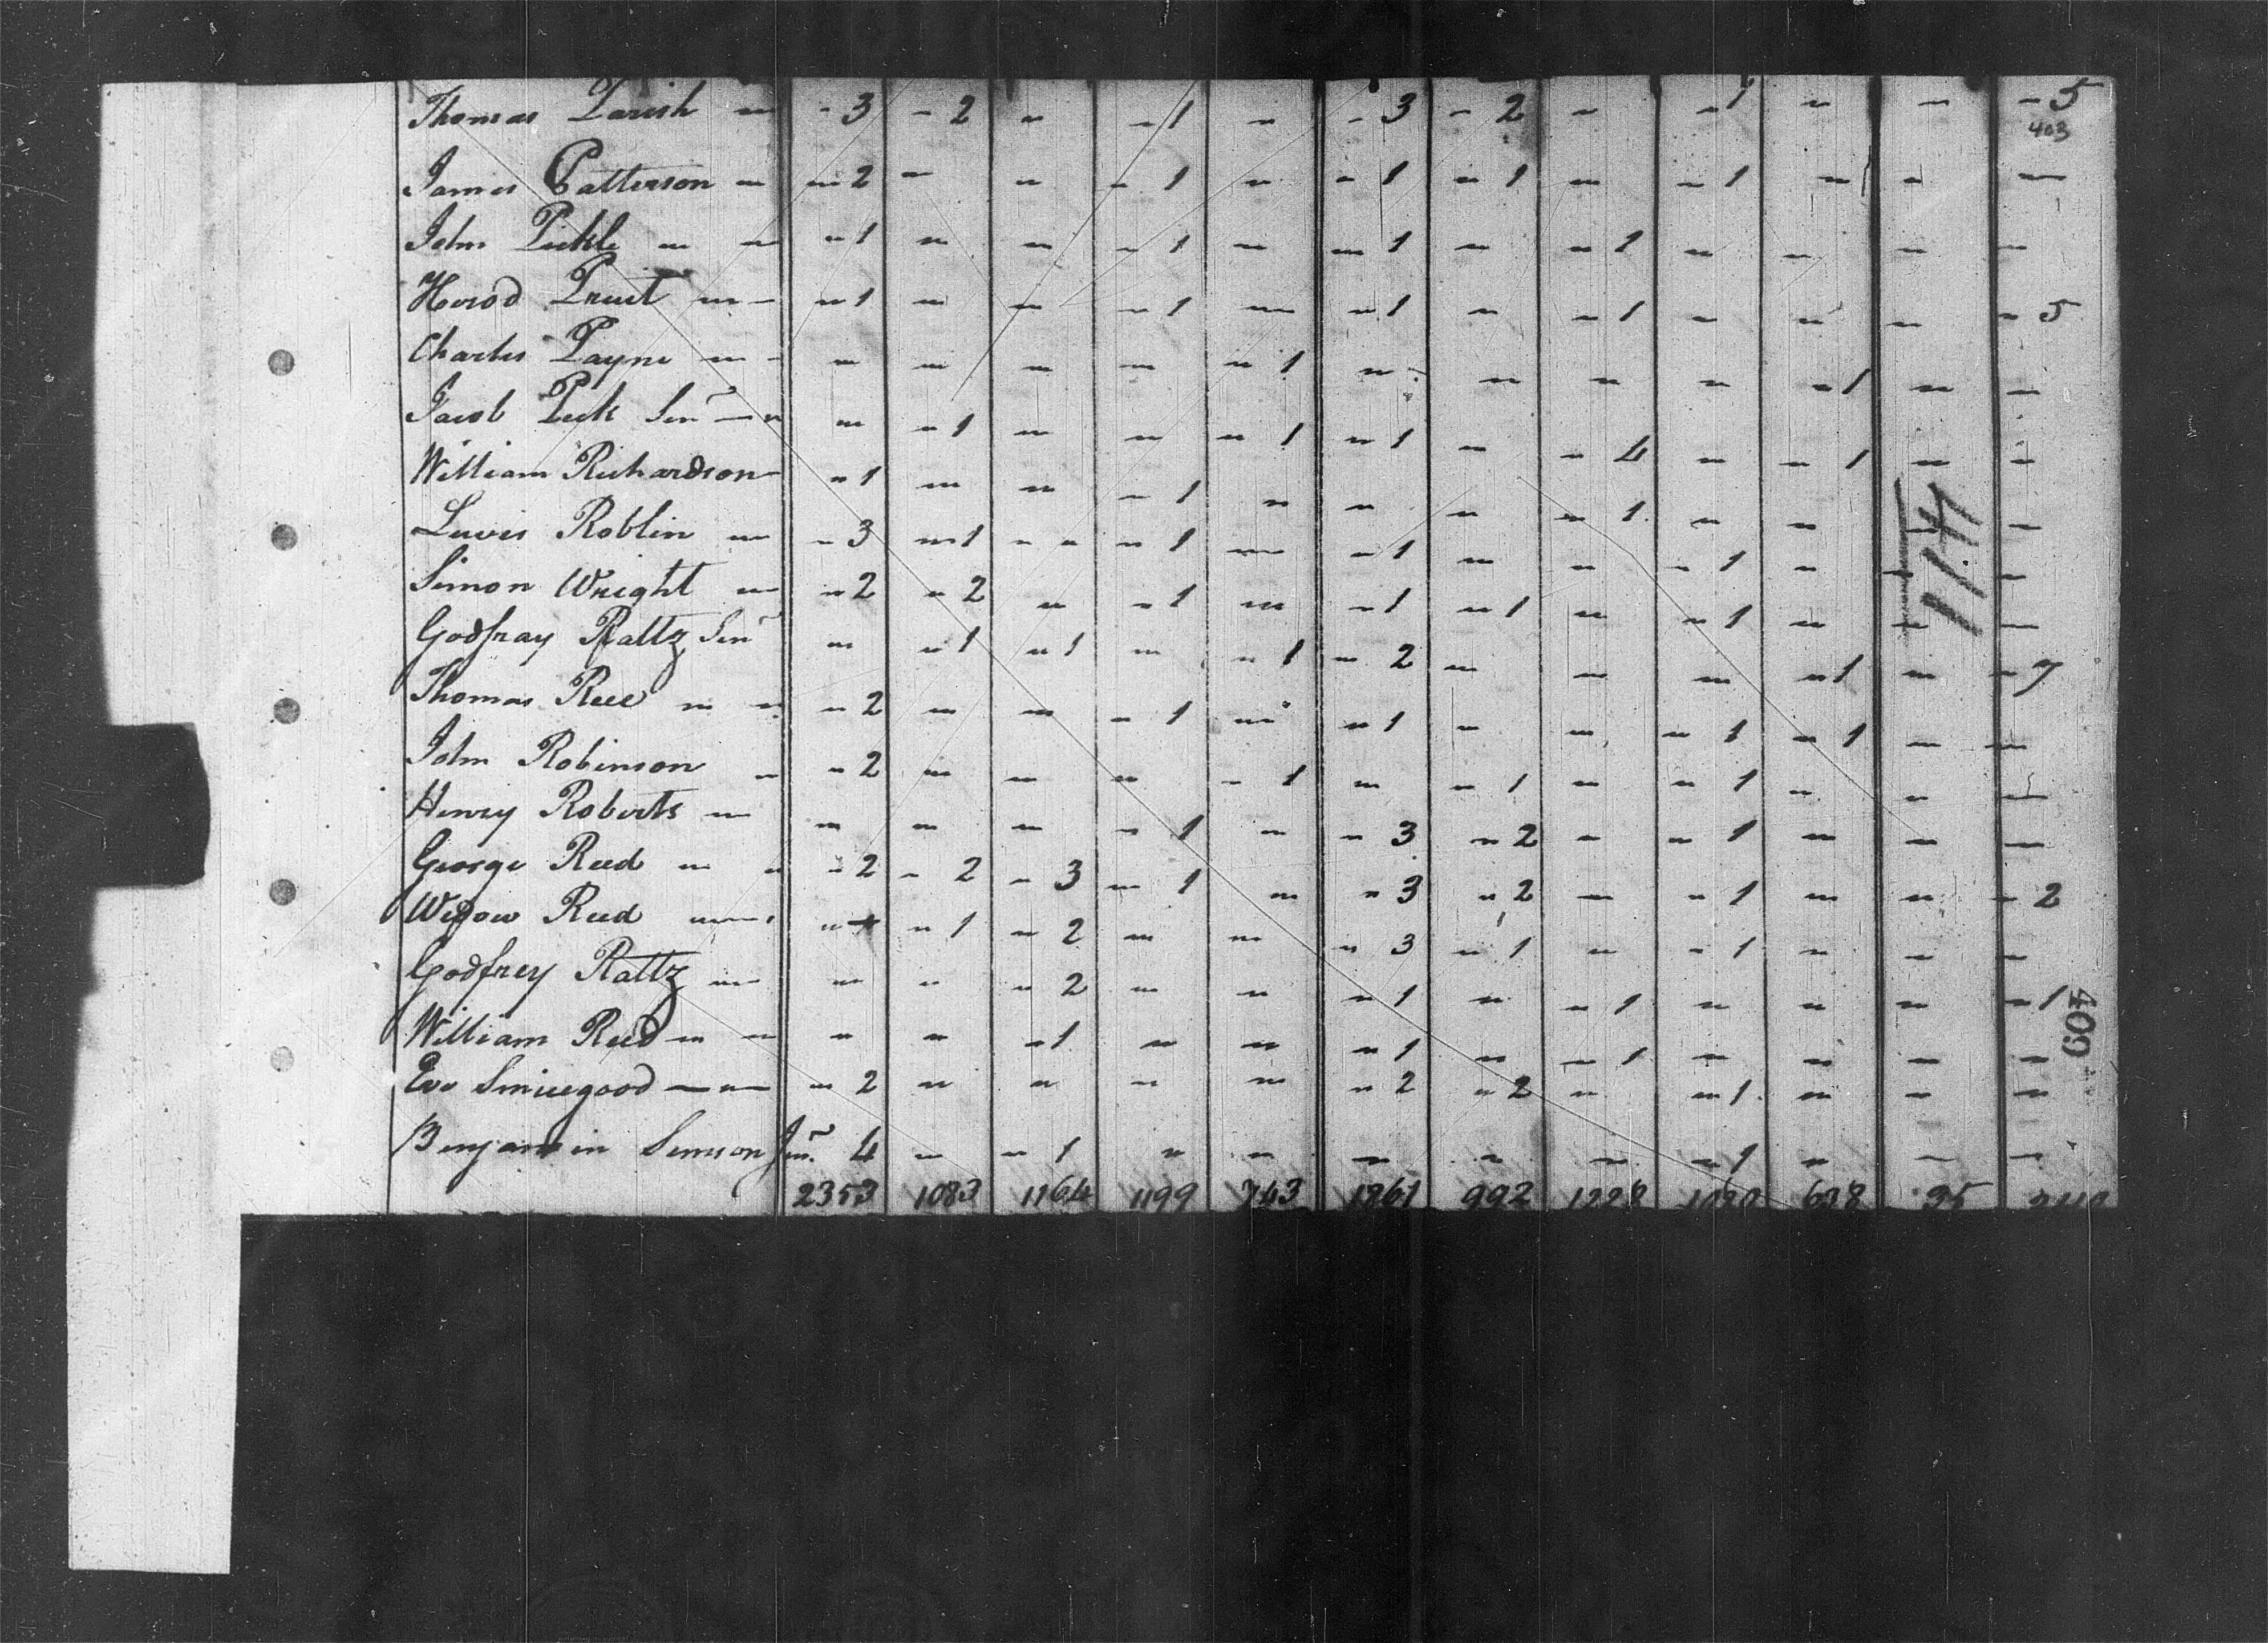 Thomas Parish " " 3 " 2 " " 1 " " 3 " 2 " " 1 " " " 5
403
James Patterson " " 2 " " " 1 " " 1 " 1 " " 1 " " "
John Pickle " " " 1 " " " 1 " " 1 " " 1 " " " "
Herod Pruit " " " 1 " " " 1 " " 1 " " 1 " " " " 5
Charles Payne " " " " " " " 1 " " " " " 1 " "
Jacob Peck Senr " " " " 1 " " " 1 " 1 " " 4 " " 1 " "
William Richardson " 1 " " " 1 " " " " 1 " " " "
Lewis Roblin " " 3 " 1 " " " 1 " " 1 " " " 1 " " "
Simon Wright " " 2 " 2 " " 1 " " 1 " 1 " " 1 " " "
Godfray Raltz Senr " " 1 " 1 " " 1 " 2 " " " " 1 " " 7
Thomas Rece " " " 2 " " " 1 " " 1 " " " 1 " 1 " "
John Robinson " " 2 " " " " 1 " " 1 " " 1 " " "
Henry Roberts " " " " " 1 " " 3 " 2 " " 1 " " "
George Reed " " " 2 " 2 " 3 " 1 " " 3 " 2 " " 1 " " " 2
Widow Reed " " " 1 " 2 " " " 3 " 1 " " 1 " " "
Godfrey Raltz " " " " 2 " " " 1 " " 1 " " " " 1
William Reed " " " " " 1 " " " 1 " " 1 " " " "
Eve Smicegood " " 2 " " " " " 2 " 2 " " 1 " " "
Benjamin Simson Junr. 4 " " 1 " " " " " " 1 " " "
2353 1083 1164 1199 743 1261 992 1228 638 35
411
403